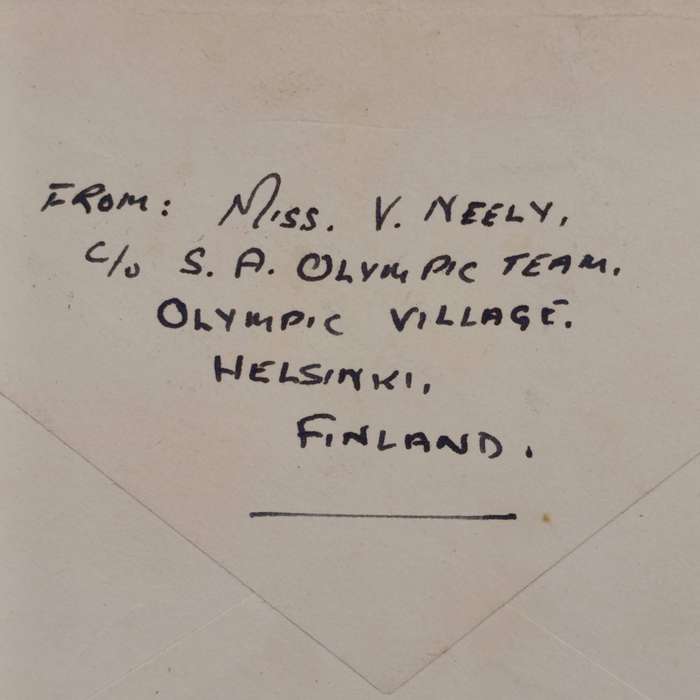 FROM: MISS. V. NEELY,
C/O S. A. OLYMPIC TEAM.
OLYMPIC VILLAGE.
HELSINKI,
FINLAND.